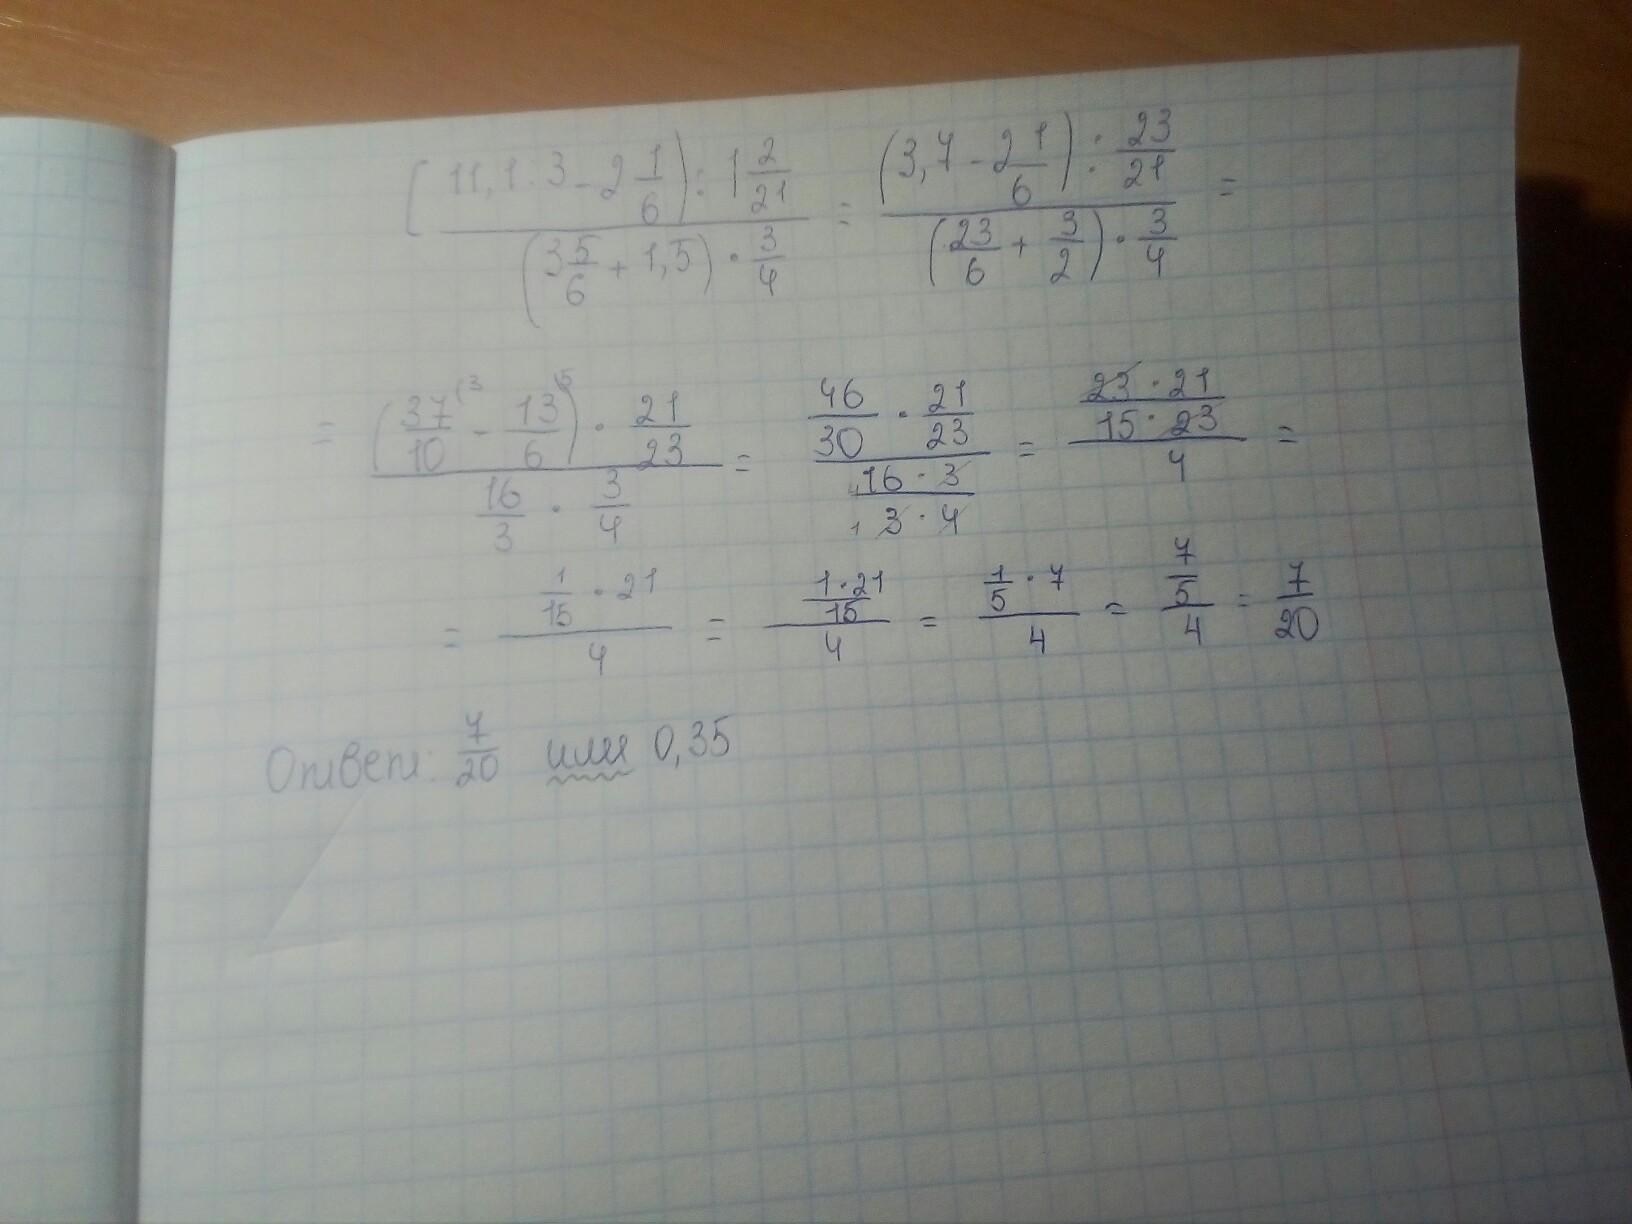 (11,1:3-2 1/6):1 2/21 / (3 5/6+1,5)·3/4 = (3,7-2 1/6):23/21 / (23/6+3/2)·3/4 =
= (37/10(3-13/6(5)·21/23 / 16/3·3/4 = 46/30·21/23 / 16·3/3·4 = 23·21/15·23 / 4 =
= 1/15·21 / 4 = 1·21/15 / 4 = 1/5·7 / 4 = 7/5 / 4 = 7/20
Ответ: 7/20 или 0,35